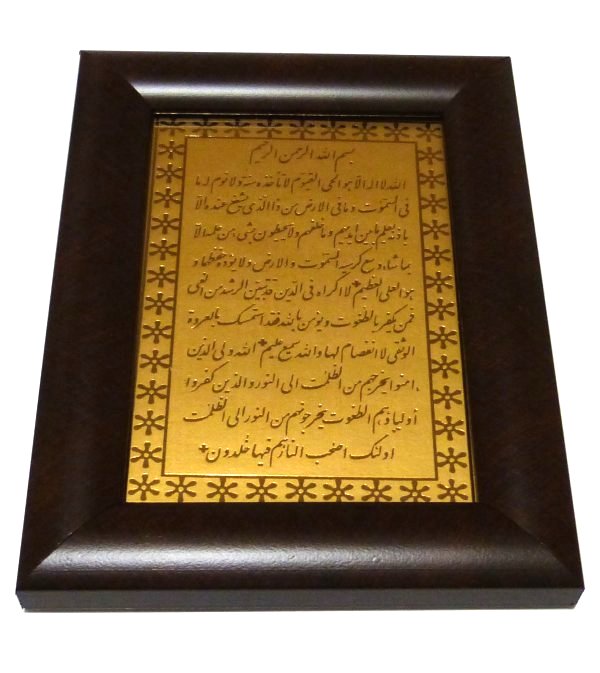 بسم الله الرحمن الرحیم
الله لا اله الا هو الحی القیوم لا تأخذه سنة ولا نوم له ما
فی السموت وما فی الارض من ذا الذی یشفع عنده الا
باذنه یعلم ما بین ایدیهم وما خلفهم ولا یحیطون بشیء من علمه الا
بما شاء وسع کرسیه السموت والارض ولا یؤده حفظهما و
هو العلی العظیم لا اکراه فی الدین قد تبین الرشد من الغی
فمن یکفر بالطغوت ویؤمن بالله فقد استمسک بالعروة
الوثقی لا انفصام لها والله سمیع علیم الله ولی الذین
امنوا یخرجهم من الظلمت الی النور والذین کفروا
أولیاؤهم الطغوت یخرجونهم من النور الی الظلمت
اولئک اصحب النار هم فیها خلدون